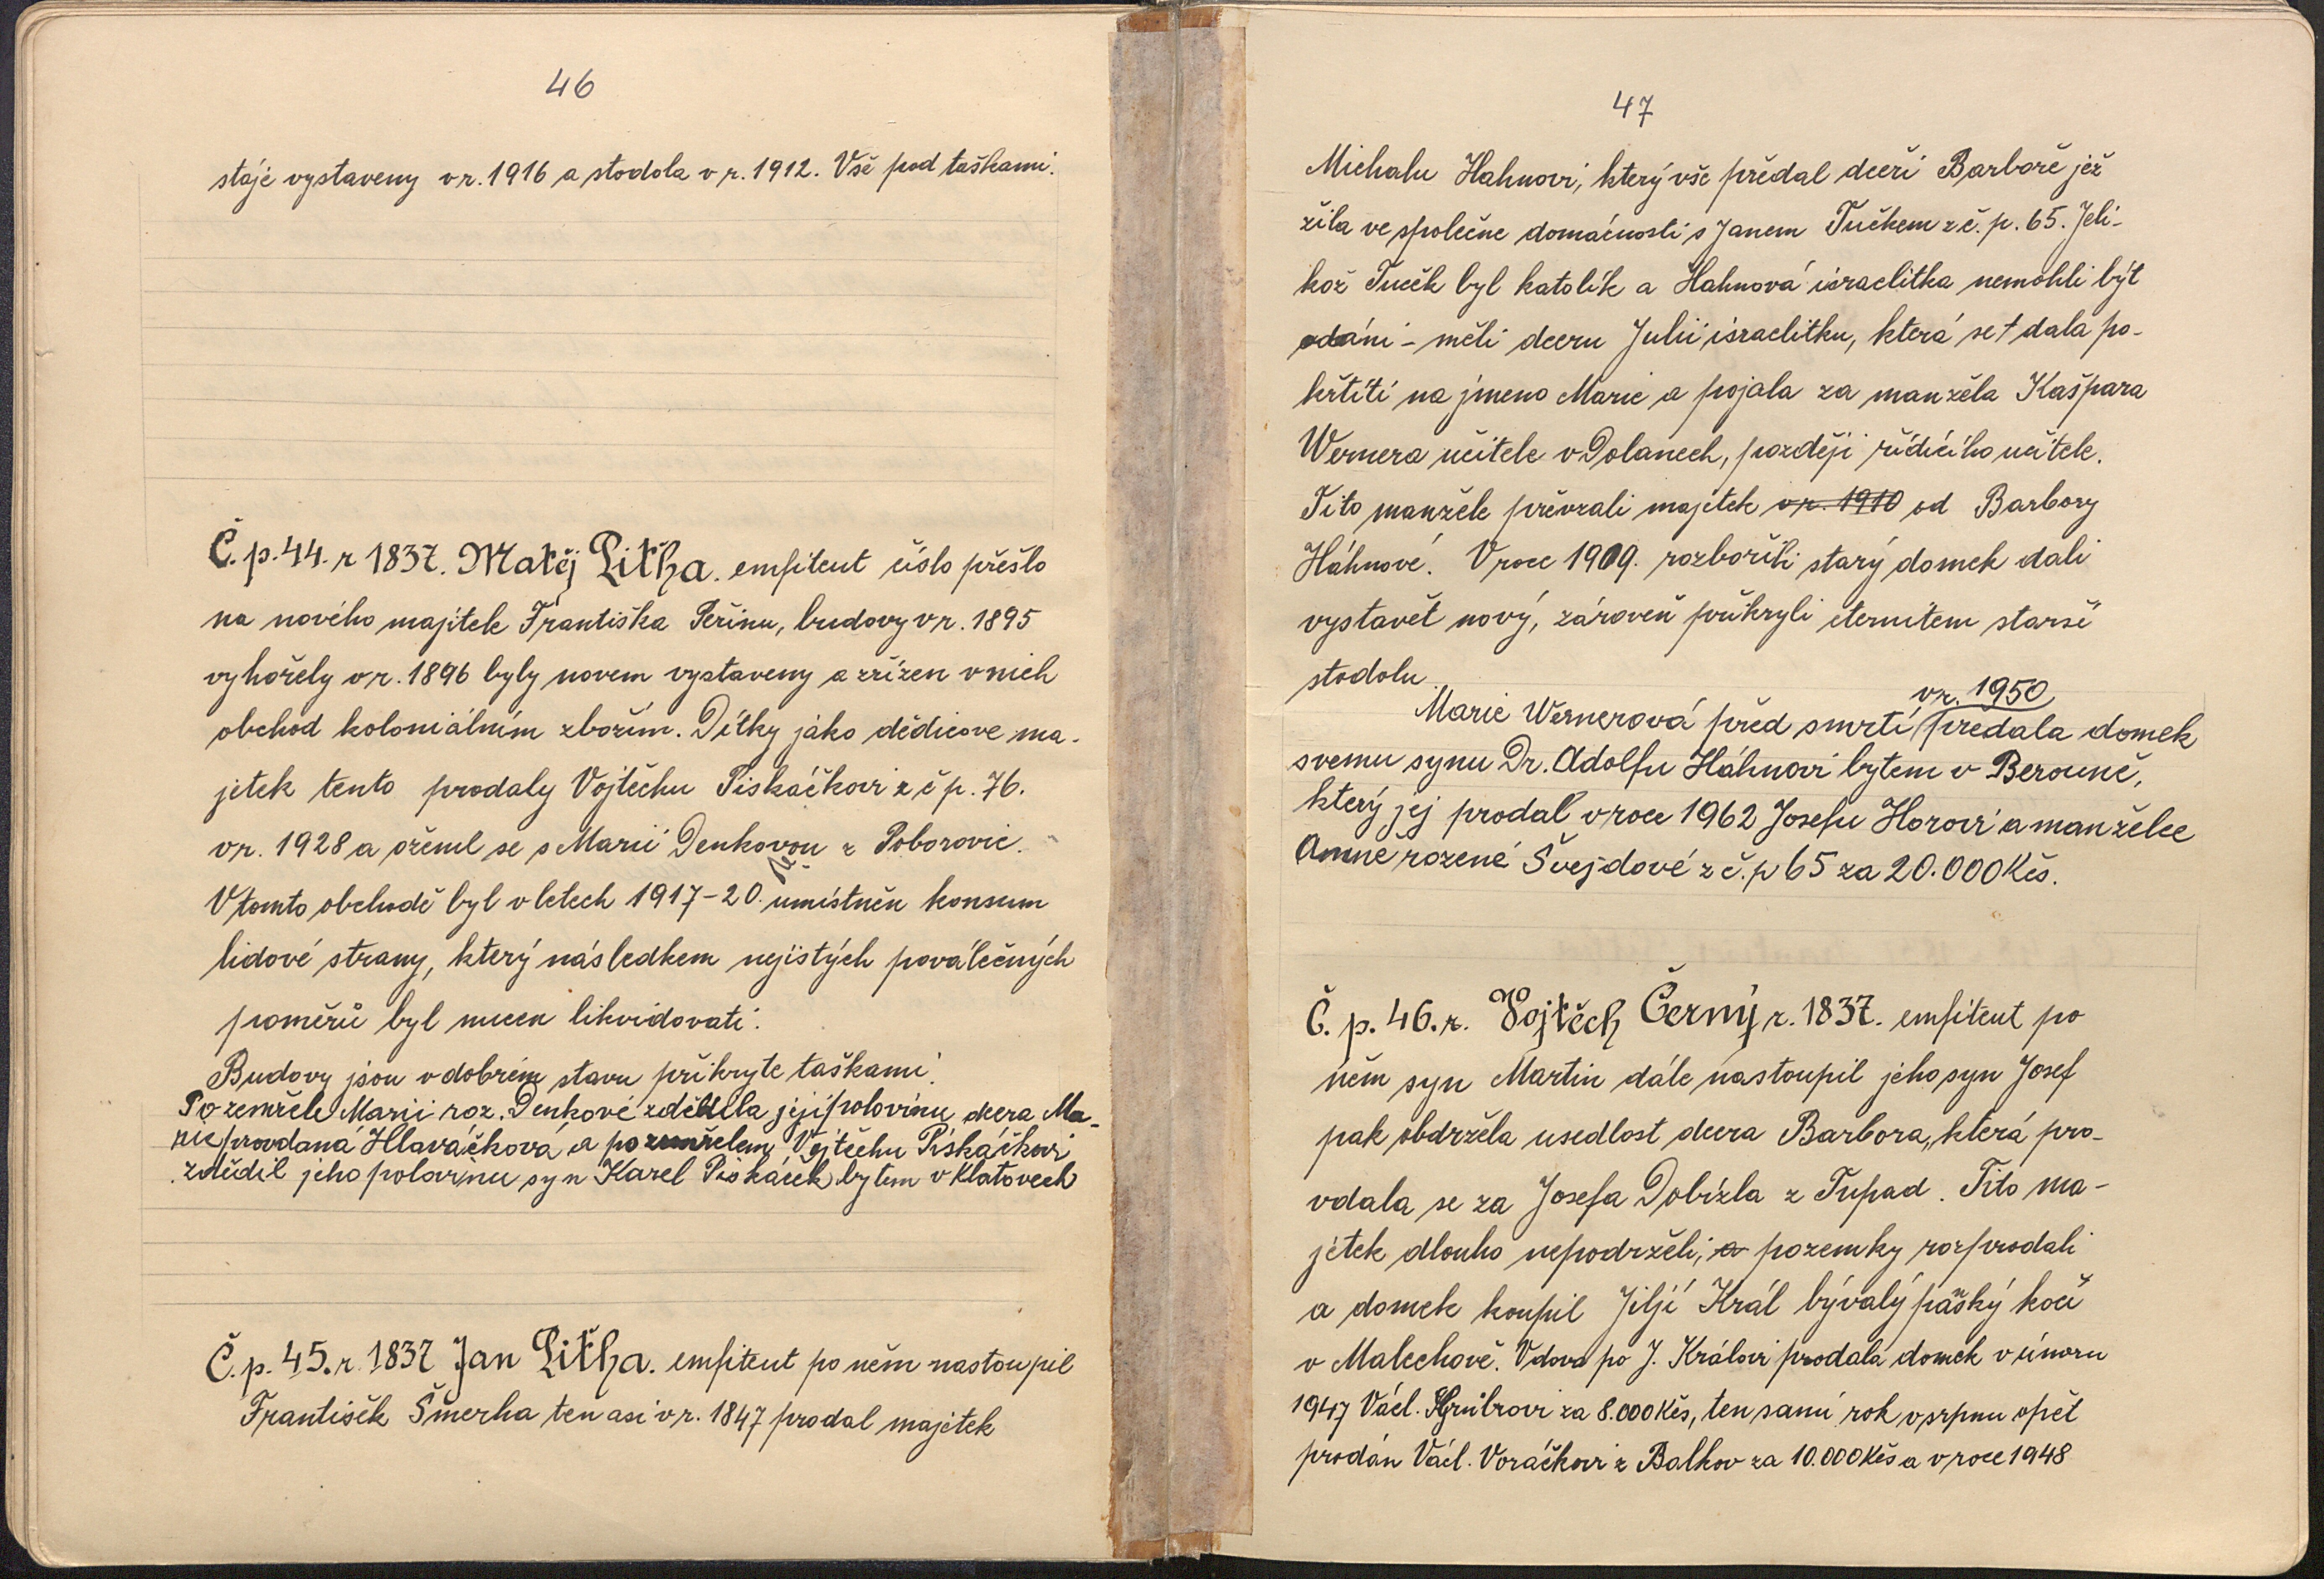 46
stáje vystaveny v r. 1916 a stodola v r. 1912. Vše pod taškami.
Č. p. 44. r 1837. Matěj Liťha. emfiteut číslo přešlo
na nového majitele Františka Peřinu, budovy v r. 1895
vyhořely v r. 1896 byly novem vystaveny a zřízen v nich
obchod koloniálním zbožím. Dítky jako dědicove ma-
jetek tento prodaly Vojtěchu Piskáčkovi z č p. 76.
v r. 1928 a oženil se s Marií Denkovou z Poborovic.
V tomto obchodě byl v letech 1917-20. umístněn konsum
lidové strany, který následkem nejistých poválečných
poměrů byl nucen likvidovati.
Budovy jsou v dobrém stavu přikryte taškami.
Po zemřelé Marii roz. Denkové zdědila její polovinu dcera Ma-
rie provdaná Hlaváčková a po zemřelem Vojtěchu Piskáčkovi
zdědil jeho polovinu syn Karel Piskáček bytem v Klatovech
Č. p. 45. r. 1837 Jan Liťha. emfiteut po něm nastoupil
František Šmerha ten asi v r. 1847 prodal majetek
47
Michalu Hahnovi, který vše předal dceři Barboře jež
žila ve společne domácnosti s Janem Tučkem z č. p. 65. Jeli-
kož Tuček byl katolík a Hahnová israelitka nemohli být
odáni - měli dceru Julii israelitku, která se + dala po-
křtíti na jmeno Marie a pojala za manžela Kašpara
Wernera učitele v Dolanech, později řídícího učitele.
Tito manžele převzali majetek v r. 1910 od Barbory
Háhnové. V roce 1909. rozbořili starý domek dali
vystavět nový, zároveň přikryli eternitem starší
stodolu.
v r. 1950
Marie Wernerová před smrtí předala domek
svemu synu Dr. Adolfu Háhnovi bytem v Berouně,
který jej prodal v roce 1962 Josefu Horovi a manželce
Anně rozené Švejdové z č. p 65 za 20.000 Kčs.
Č. p. 46. r. Vojtěch Černý r. 1837. emfiteut po
něm syn Martin dále nastoupil jeho syn Josef
pak obdržela usedlost dcera Barbora, která pro-
vdala se za Josefa Dobízla z Tupad. Tito ma-
jetek dlouho nepodrželi, a pozemky rozprodali
a domek koupil Jiljí Král bývalý pašký kočí
v Malechově. Vdova po J. Královi prodala domek v únoru
1947 Václ. Grubrovi za 8.000 Kčs, ten samí rok v srpnu opět
prodán Václ. Voráčkovi z Balkov za 10.000 Kčs a v roce 1948